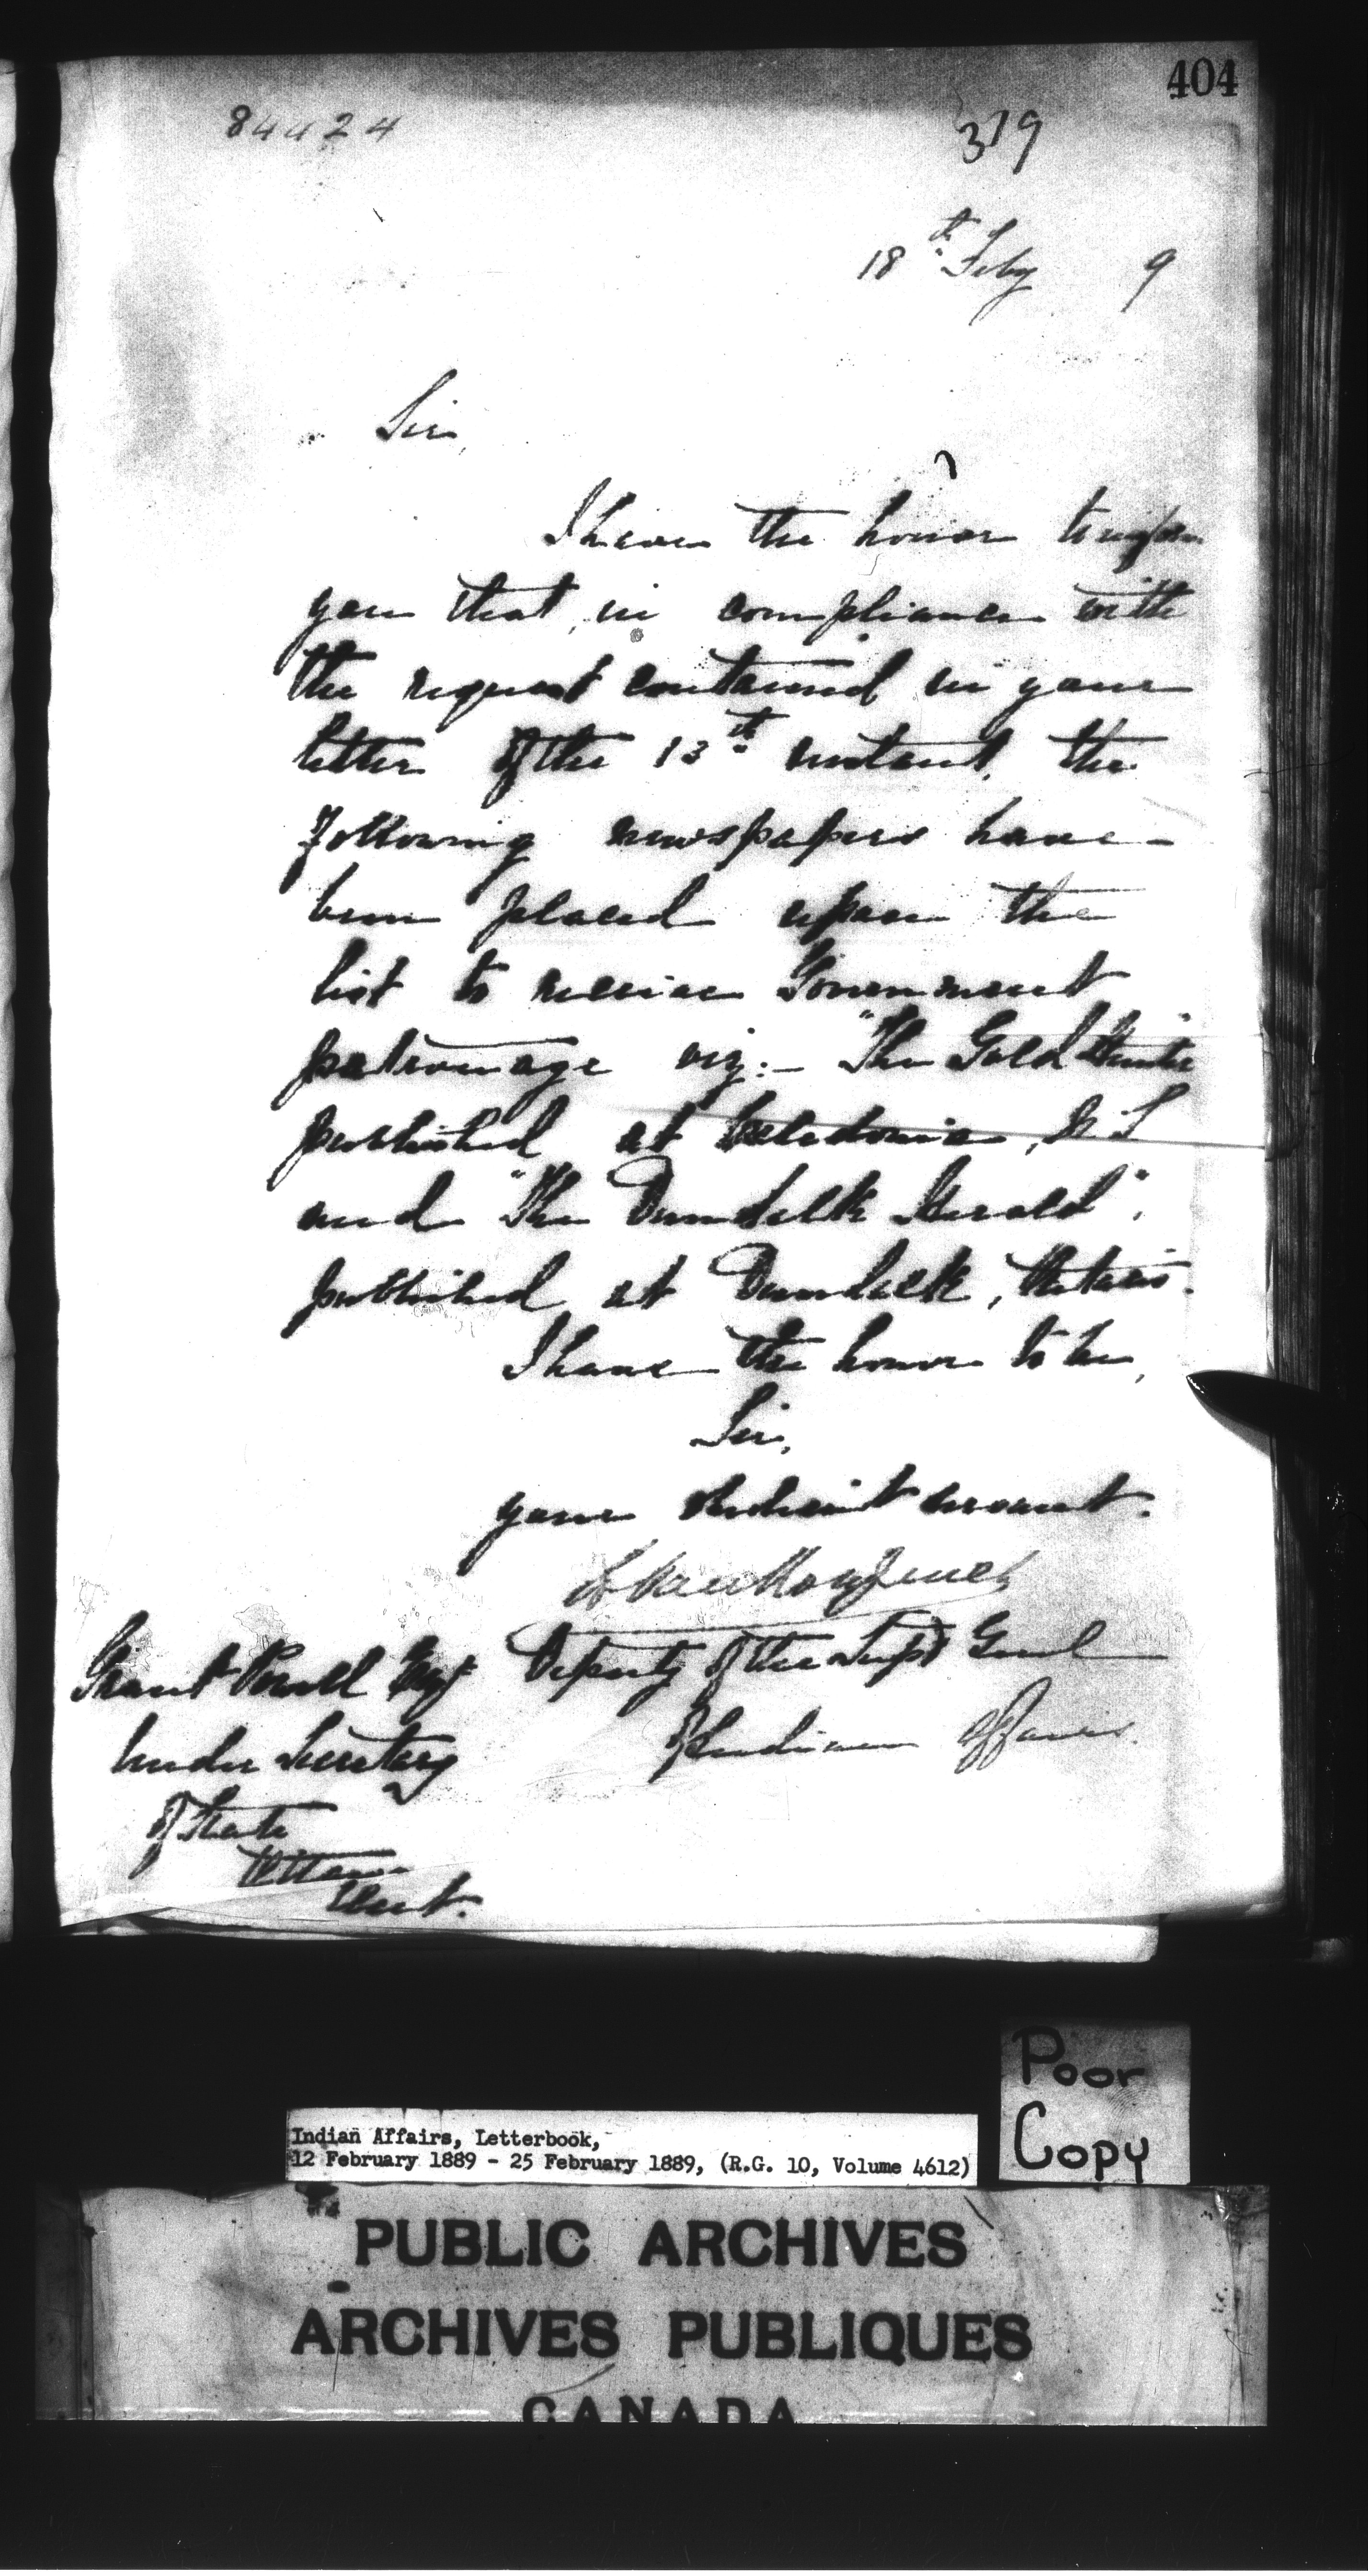 404
84424
379
18th Feby 9
Sir,
I have the honor to inform
you that, in compliance with
the request contained in your
letter of the 13th instant, the
following newspapers have
been placed upon the
list to receive Government
patronage viz:- "The Gold Hunter"
published at Caledonia, N S
and "The Dundalk Herald",
published at Dundalk, Ontario.
I have the honor to be,
Sir,
your obedient servant.
L Vankoughnet
Deputy of the Supt Genl
of Indian Affairs.
Grant Powell Esq
Under Secretary
of State
Ottawa
Ont.
Poor
Copy
Indian Affairs, Letterbook,
12 February 1889 - 25 February 1889, (R.G. 10, Volume 4612)
PUBLIC ARCHIVES
ARCHIVES PUBLIQUES
CANADA